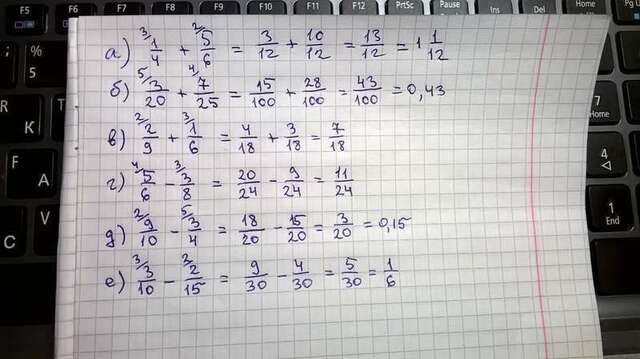 F5 F6 F7 F8 F9 F10 F11 F12 PrtSc Pause
% 5
R К
F А
C V
7 Home
4
1 End
0
а) ³/1/4 + ²/5/6 = 3/12 + 10/12 = 13/12 = 1 1/12
б) ⁵/3/20 + ⁴/7/25 = 15/100 + 28/100 = 43/100 = 0,43
в) ²/2/9 + ³/1/6 = 4/18 + 3/18 = 7/18
г) ⁴/5/6 - ³/3/8 = 20/24 - 9/24 = 11/24
д) ²/9/10 - ⁵/3/4 = 18/20 - 15/20 = 3/20 = 0,15
е) ³/3/10 - ²/2/15 = 9/30 - 4/30 = 5/30 = 1/6